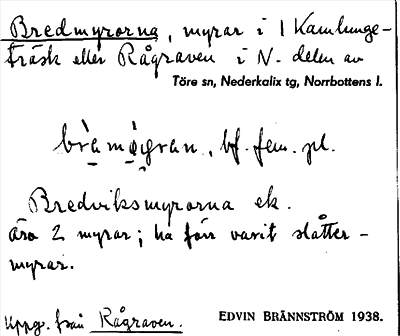 Bredmyrorna, myrar i l Kamlunge-
träsk eller Rågraven i N. delen av
Töre sn, Nederkalix tg, Norrbottens l.
bf. fem. pl.
Bredviksmyrorna ek.
äro 2 myrar; ha förr varit slåtter-
myrar.
Uppg. från Rågraven.
EDVIN BRÄNNSTRÖM 1938.